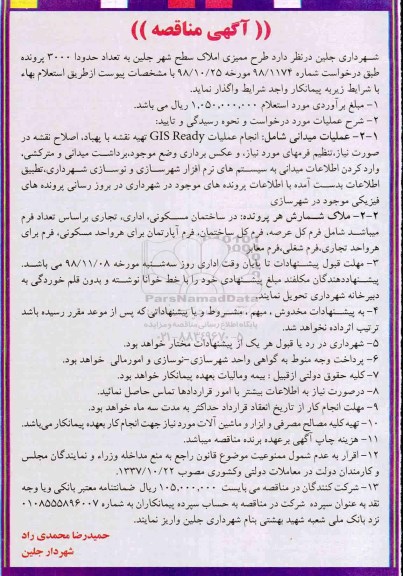 (( آگهی مناقصه ))
شــهرداری جلین درنظر دارد طرح ممیزی املاک سطح شهر جلین به تعداد حدودا ۳۰۰۰ پرونده
طبق درخواست شماره ۹۸/۱۱۷۴ مورخه ۹۸/۱۰/۲۵ با مشخصات پیوست ازطریق استعلام بهاء
با شرایط زیربه پیمانکار واجد شرایط واگذار نماید.
۱- مبلغ برآوردی مورد استعلام ۱،۰۵۰،۰۰۰،۰۰۰ ریال می باشد.
۲- شرح عملیات مورد درخواست و نحوه رسیدگی و تایید:
۲-۱- عملیات میدانی شامل: انجام عملیات GIS Ready تهیه نقشه با پهپاد، اصلاح نقشه در
صورت نیاز،تنظیم فرمهای مورد نیاز، و عکس برداری وضع موجود،برداشـت میدانی و مترکشی،
وارد کردن اطلاعات میدانی به سیسـتم های نرم افزار شهرسـازی و نوسـازی شـهرداری،تطبیق
اطلاعات بدست آمده با اطلاعات پرونده های موجود در شهرداری در بروز رسانی پرونده های
فیزیکی موجود در شهرسازی
۲-۲- ملاک شـمارش هر پرونده: در ساختمان مسـکونی، اداری، تجاری براساس تعداد فرم
میباشـد شامل فرم کل عرصه، فرم کل ساختمان، فرم آپارتمان برای هرواحد مسکونی، فرم برای
هرواحد تجاری،فرم شغلی،فرم معابر
۳- مهلت قبول پیشـنهادات تا پایان وقت اداری روز سه‌شـنبه مورخه ۹۸/۱۱/۰۸ می باشـد.
پیشـنهاددهندگان مکلفند مبلغ پیشـنهادی خود را با خط خوانا نوشـته و بدون قلم خوردگی به
دبیرخانه شهرداری تحویل نمایند.
۴- به پیشـنهادات مخدوش ، مبهم ، مشـروط و یا پیشنهاداتی که پس از موعد مقرر رسیده باشد
ترتیب اثرداده نخواهد شد.
۵- شهرداری در رد یا قبول هر یک از پیشنهادات مختار خواهد بود.
۶- پرداخت وجه منوط به گواهی واحد شهرسازی-نوسازی و امورمالی خواهد بود.
۷- کلیه حقوق دولتی ازقبیل : بیمه ومالیات بعهده پیمانکار خواهد بود.
۸- درصورت نیاز به اطلاعات بیشتر با امور قراردادها تماس حاصل نمائید.
۹- مهلت انجام کار از تاریخ انعقاد قرارداد حداکثر به مدت سه ماه خواهد بود.
۱۰- تهیه کلیه مصالح مصرفی و ابزار و ماشین آلات مورد نیاز جهت انجام کار بعهده پیمانکار می‌باشد.
۱۱- هزینه چاپ آگهی برعهده برنده مناقصه میباشد.
۱۲- اقرار به عدم شمول ممنوعیت موضوع قانون راجع به منع مداخله وزراء و نمایندگان مجلس
و کارمندان دولت در معاملات دولتی وکشوری مصوب ۱۳۳۷/۱۰/۲۲
۱۳- شرکت کنندگان در مناقصه می بایست ۱۰۵،۰۰۰،۰۰۰ ریال ضمانتنامه معتبر بانکی ویا وجه
نقد به عنوان سپرده شرکت در مناقصه به حساب سپرده پیمانکاران به شماره ۰۱۰۸۵۵۵۸۹۶۰۰۷
نزد بانک ملی شعبه شهید بهشتی بنام شهرداری جلین واریز نمایند.
حمیدرضا محمدی راد
شهردار جلین
ParsNamadData
پایگاه اطلاع رسانی مناقصه و مزایده
۰۲۱-۸۸۳۴۹۶۷۰-۵